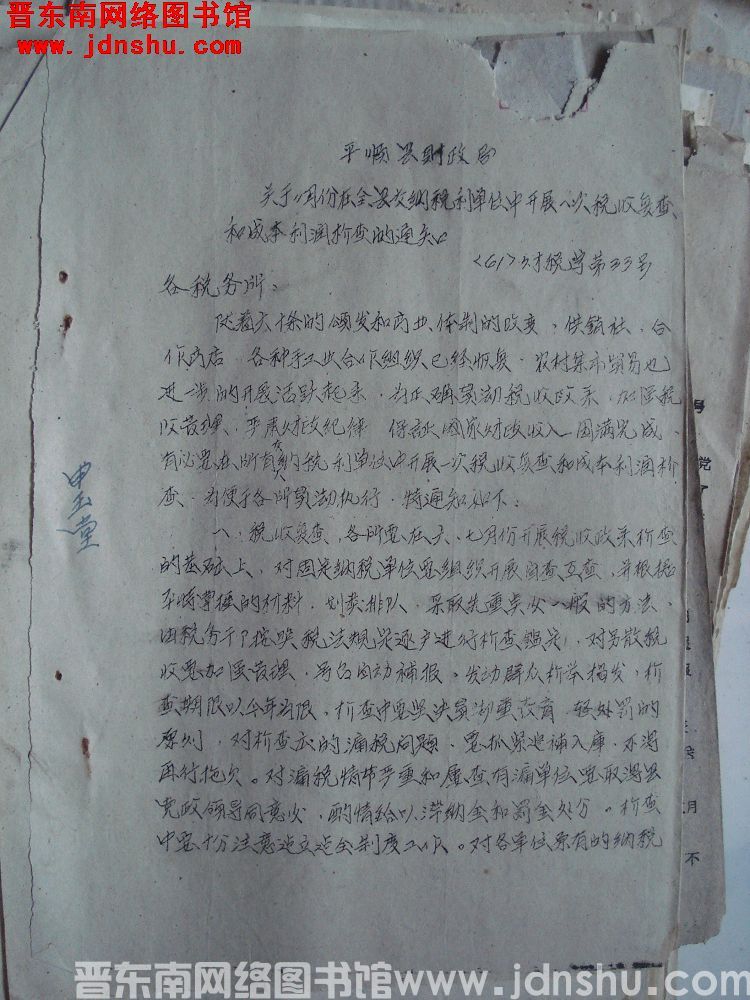 晋东南网络图书馆
www.jdnshu.com
平顺县财政局
关于八月份在全县交纳税利单位中开展一次税收复查
和成本利润检查的通知
<61>财税字第33号
各税务所:
随着六十条的颁发和商业体制的改变,供销社、合
作商店、各种手工业合作组织已经恢复,农村集市贸易也
进一步的开展活跃起来,为正确贯彻税收政策,加强税
收管理,严肃财政纪律,保证国家财政收入圆满完成,
有必要在所有交纳税利单位中开展一次税收复查和成本利润检
查,为便于各所贯彻执行,特通知如下:
一、税收复查,各所要在六、七月份开展税收政策检查
的基础上,对固定纳税单位要组织开展自查互查,并根据
平时掌握的材料,划类排队,采取先重点后一般的方法,
由税务干部按照税法规定逐户进行检查,对另散税
收要加强管理,号召自动补报,发动群众检举揭发,检
查期限以今年为限,检查中要坚决贯彻重教育、轻处罚的
原则,对检查出的漏税问题,要抓紧追补入库,不得
再行拖欠。对漏税情节严重和屡查有漏单位要取得县
党政领导同意后,酌情给以滞纳金和罚金处分。检查
中要十分注意建立健全制度工作。对各单位原有的纳税
申玉堂
号
党
月
不
晋东南网络图书馆www.jdnshu.com